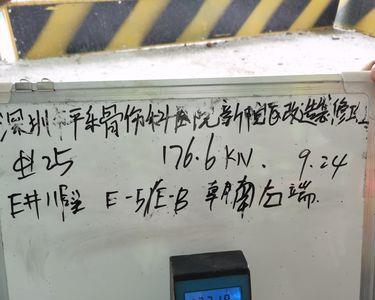 深圳平乐骨伤科医院新院区改造装修工
⌀25 176.6KN. 9.24
E井11层 E-5/E-B 朝南右端